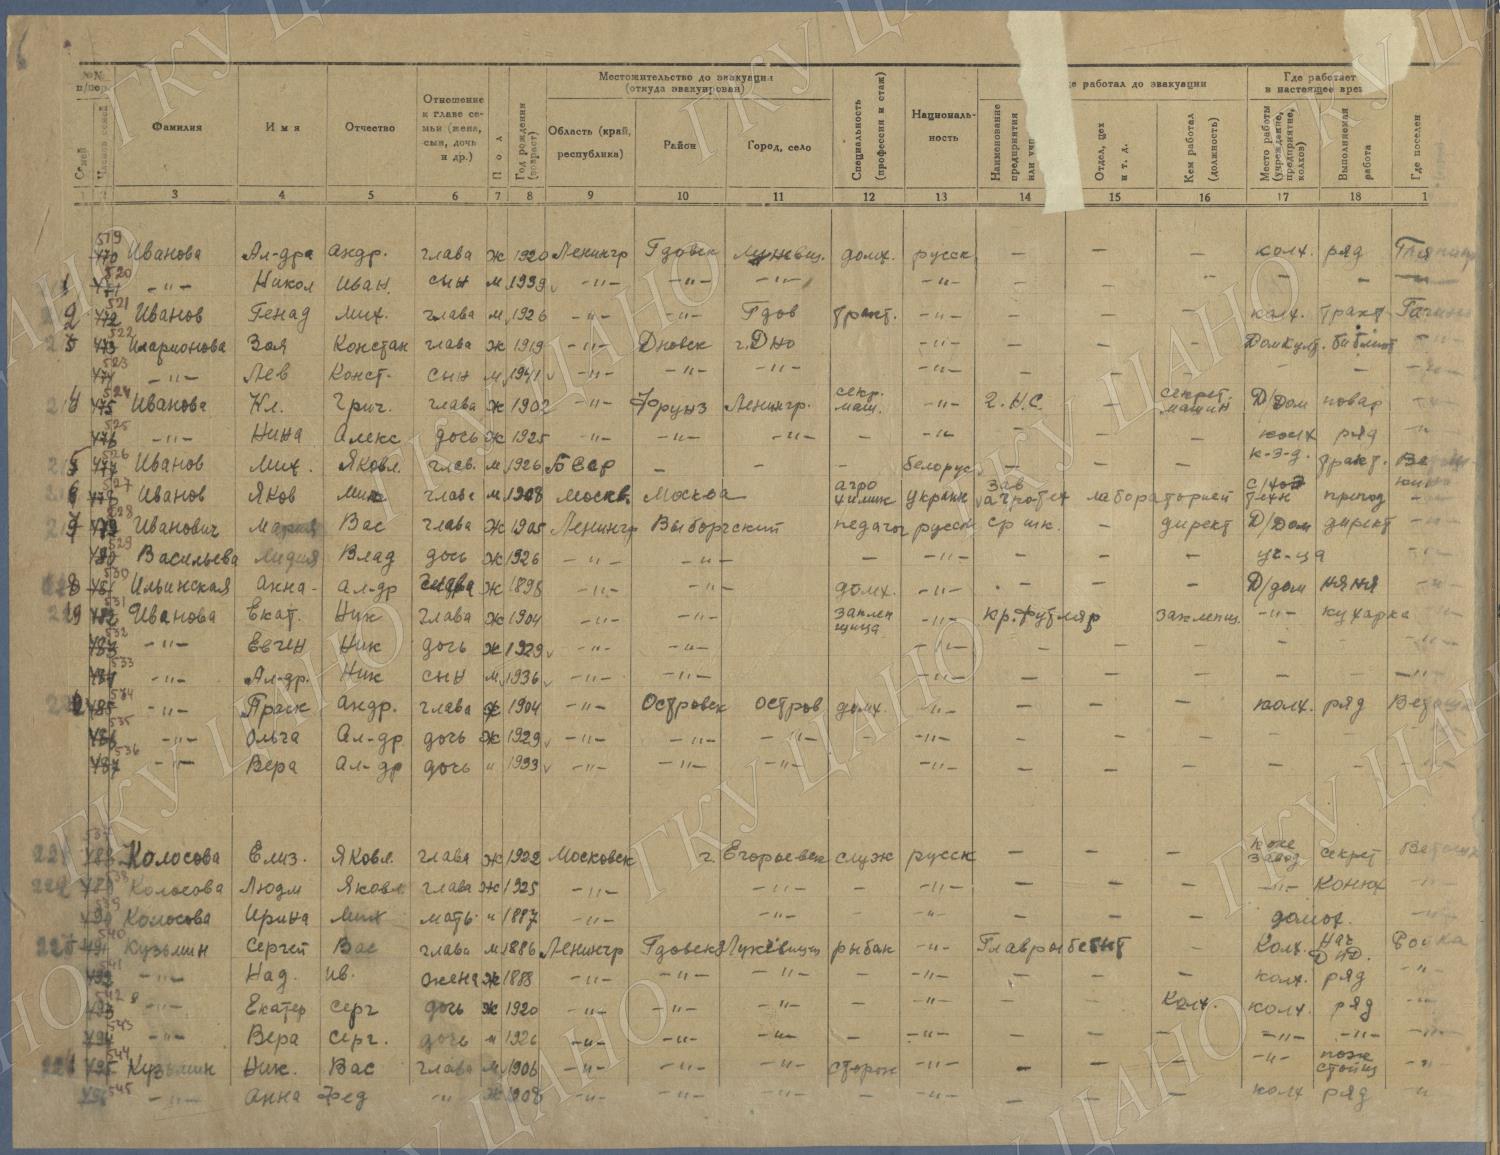 №№ п/пор.
Местожительство до эвакуации (откуда эвакуирован)
Где работал до эвакуации
Где работает в настоящее врем
Семей
Членов семьи
Фамилия
Имя
Отчество
Отношение к главе семьи (жена, сын, дочь и др.)
Пол
Год рождения (возраст)
Область (край, республика)
Район
Город, село
Специальность (профессия и стаж)
Национальность
Наименование предприятия или уч
Отдел, цех и т. д.
Кем работал (должность)
Место работы (учреждение, предприятие, колхоз)
Выполняемая работа
Где поселен
3 4 5 6 7 8 9 10 11 12 13 14 15 16 17 18 1
519 470 Иванова Ал-дра Андр. глава ж 1920 Ленингр Гдовск домх. русск — — — колх. ряд
520 471 —"— Никол Иван. сын м 1939 —"— —"— —"— —"— — —
521 472 Иванов Генад Мих. глава м 1926 —"— —"— Гдов тракт. —"— — — — колх. тракт.
522 473 Иларионова Зоя Констан глава ж 1919 —"— Дновск г. Дно —"— — — — Дом культ. библиот —"—
523 474 —"— Лев Конст. сын м 1941 —"— —"— —"— —"— — — — — — —"—
524 475 Иванова Кл. Григ. глава ж 1902 —"— Фрунз Ленингр. секр. маш. —"— секрет. машин Д/Дом повар —"—
525 476 —"— Нина Алекс дочь ж 1925 —"— —"— —"— — —"— — — — колх ряд —"—
526 477 Иванов Мих. Яковл. глав. м 1926 БССР — — — белорус. — — — к-з-д. тракт.
527 478 Иванов Яков Мих глава м 1908 Москв. Москва агро химик украин зав агротех лабораторией с/хоз техн препод —"—
528 479 Иванович Мария Вас глава ж 1905 Ленингр Выборгский педагог русск ср шк. — директ Д/Дом директ —"—
529 480 Васильева Лидия Влад дочь ж 1926 —"— —"— — —"— — — — уч-ца —"—
530 481 Ильинская Анна Ал-др глава ж 1898 —"— —"— домх. —"— — — — Д/дом няня —"—
531 482 Иванова Екат. Ник глава ж 1904 —"— —"— заклеп щица —"— кр. Футляр заклепщ. —"— кухарка —"—
532 483 —"— Евген Ник дочь ж 1929 —"— —"— —"— — — — — — —"—
533 484 —"— Ал-др. Ник сын м 1936 —"— —"— —"— — — — — — —"—
534 485 —"— Праск Андр. глава ж 1904 —"— Островск Остров домх. —"— — — — колх. ряд
535 486 —"— Ольга Ал-др дочь ж 1929 —"— —"— —"— — —"— — — — — — —"—
536 487 —"— Вера Ал-др дочь " 1933 —"— —"— —"— — —"— — — — — — —"—
537 488 Колосова Елиз. Яковл. глава ж 1922 Московск г. Егорьевск служ русск — — — завод секрет
538 489 Колосова Людм Яковл глава ж 1925 —"— —"— — —"— — — — —"— конюх —"—
539 490 Колосова Ирина Мих мать " 1887 —"— — —"— — — — домох. —"—
540 491 Кузьмин Сергей Вас глава м 1886 Ленингр Гдовск рыбак —"— — Колх.
541 492 —"— Над. Ив. жена ж 1888 —"— —"— —"— — —"— — — — колх. ряд —"—
542 493 —"— Екатер Серг дочь ж 1920 —"— —"— —"— — —"— — Колх. колх. ряд —"—
543 494 —"— Вера Серг. дочь 1926 —"— —"— —"— — —"— — — — —"— —"— —"—
544 495 Кузьмин Ник. Вас глава м 1906 —"— —"— —"— сторож —"— — — — —"— —"—
545 496 —"— Анна Фед —"— ж 1908 —"— —"— —"— — —"— — — — колх ряд —"—
ГКУ ЦАНО